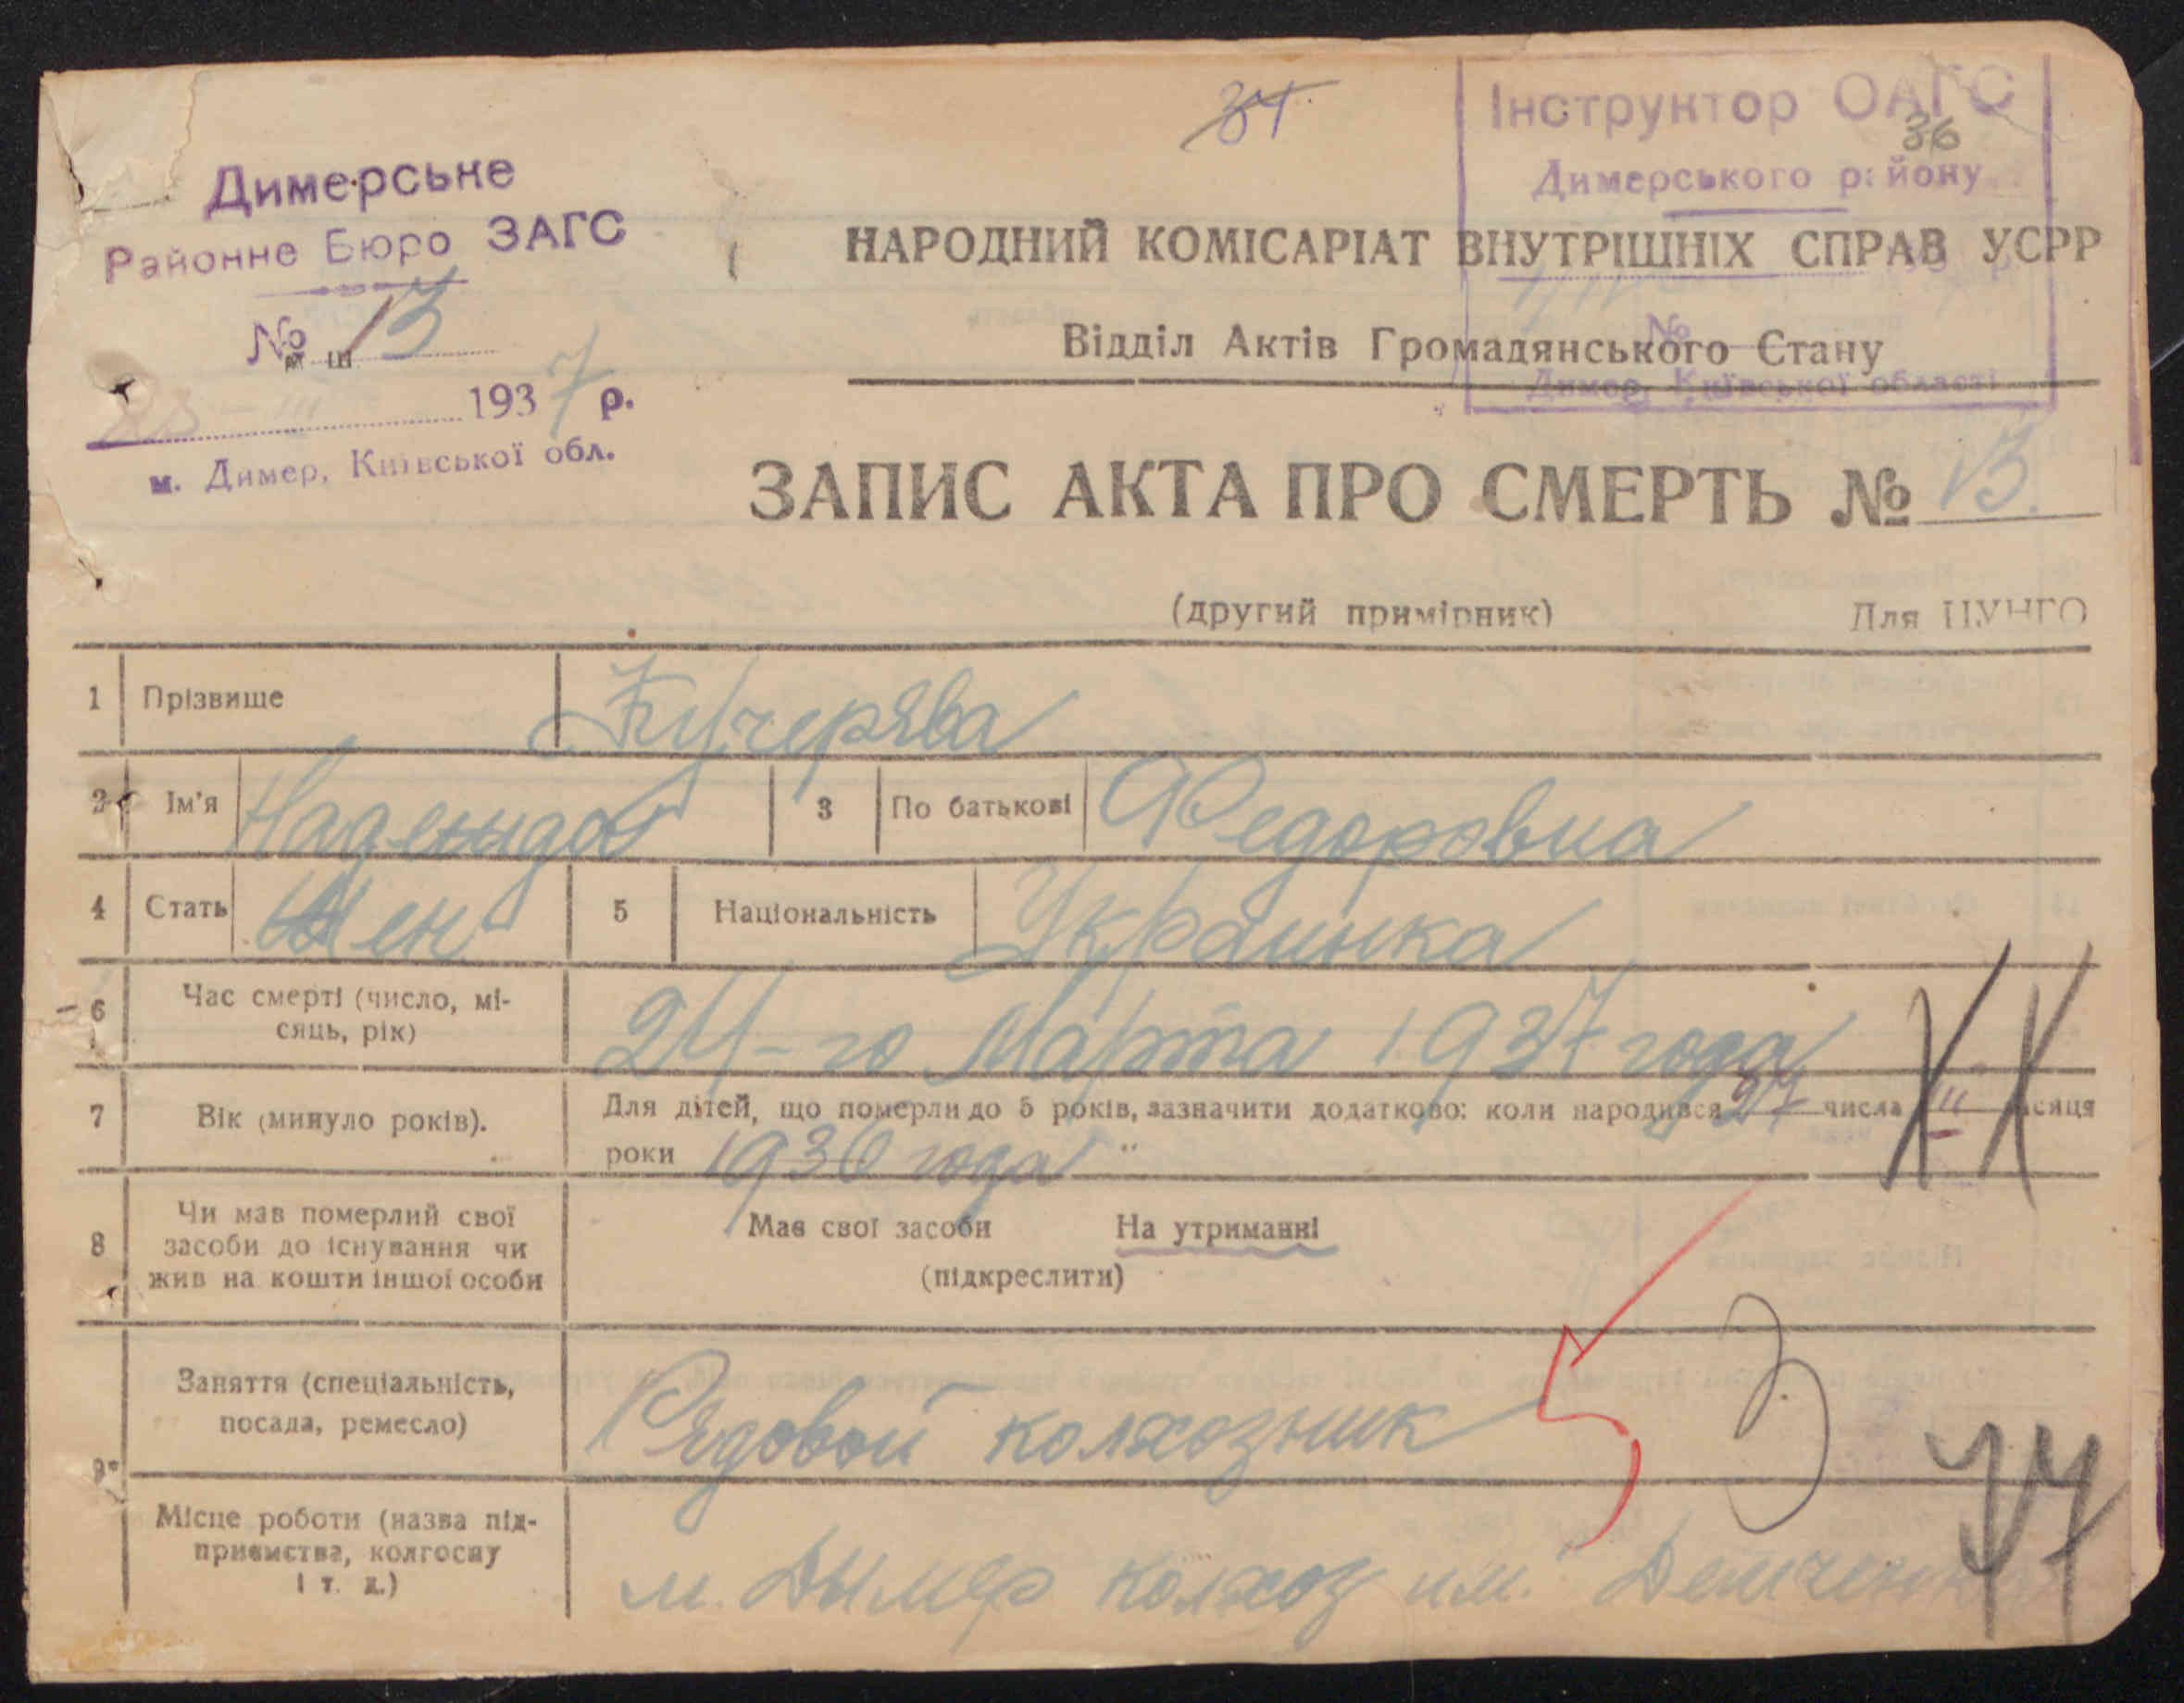 34
Інструктор ОАГС
36
Димерського району
№
Димер, Київської області
Димерське
Районне Бюро ЗАГС
№ 13
23 - III 1937 р.
м. Димер, Київської обл.
НАРОДНИЙ КОМІСАРІАТ ВНУТРІШНІХ СПРАВ УСРР
Відділ Актів Громадянського Стану
ЗАПИС АКТА ПРО СМЕРТЬ № 13.
(другий примірник) Для ЦУНГО
1 Прізвище Кучерява
2 Ім'я Надежда 3 По батькові Федоровна
4 Стать Жен 5 Національність Украинка
6 Час смерті (число, мі-
сяць, рік) 24-го Марта 1937 года
7 Вік (минуло років). Для дітей, що померли до 5 років, зазначити додатково: коли народився 27 числа III місяця
роки 1936 года
8 Чи мав померлий свої
засоби до існування чи
жив на кошти іншої особи
Має свої засоби На утриманні
(підкреслити)
9 Заняття (спеціальність,
посада, ремесло) Рядовой колхозник
Місце роботи (назва під-
приємства, колгоспу
і т. д.) м. Дымер колхоз им.